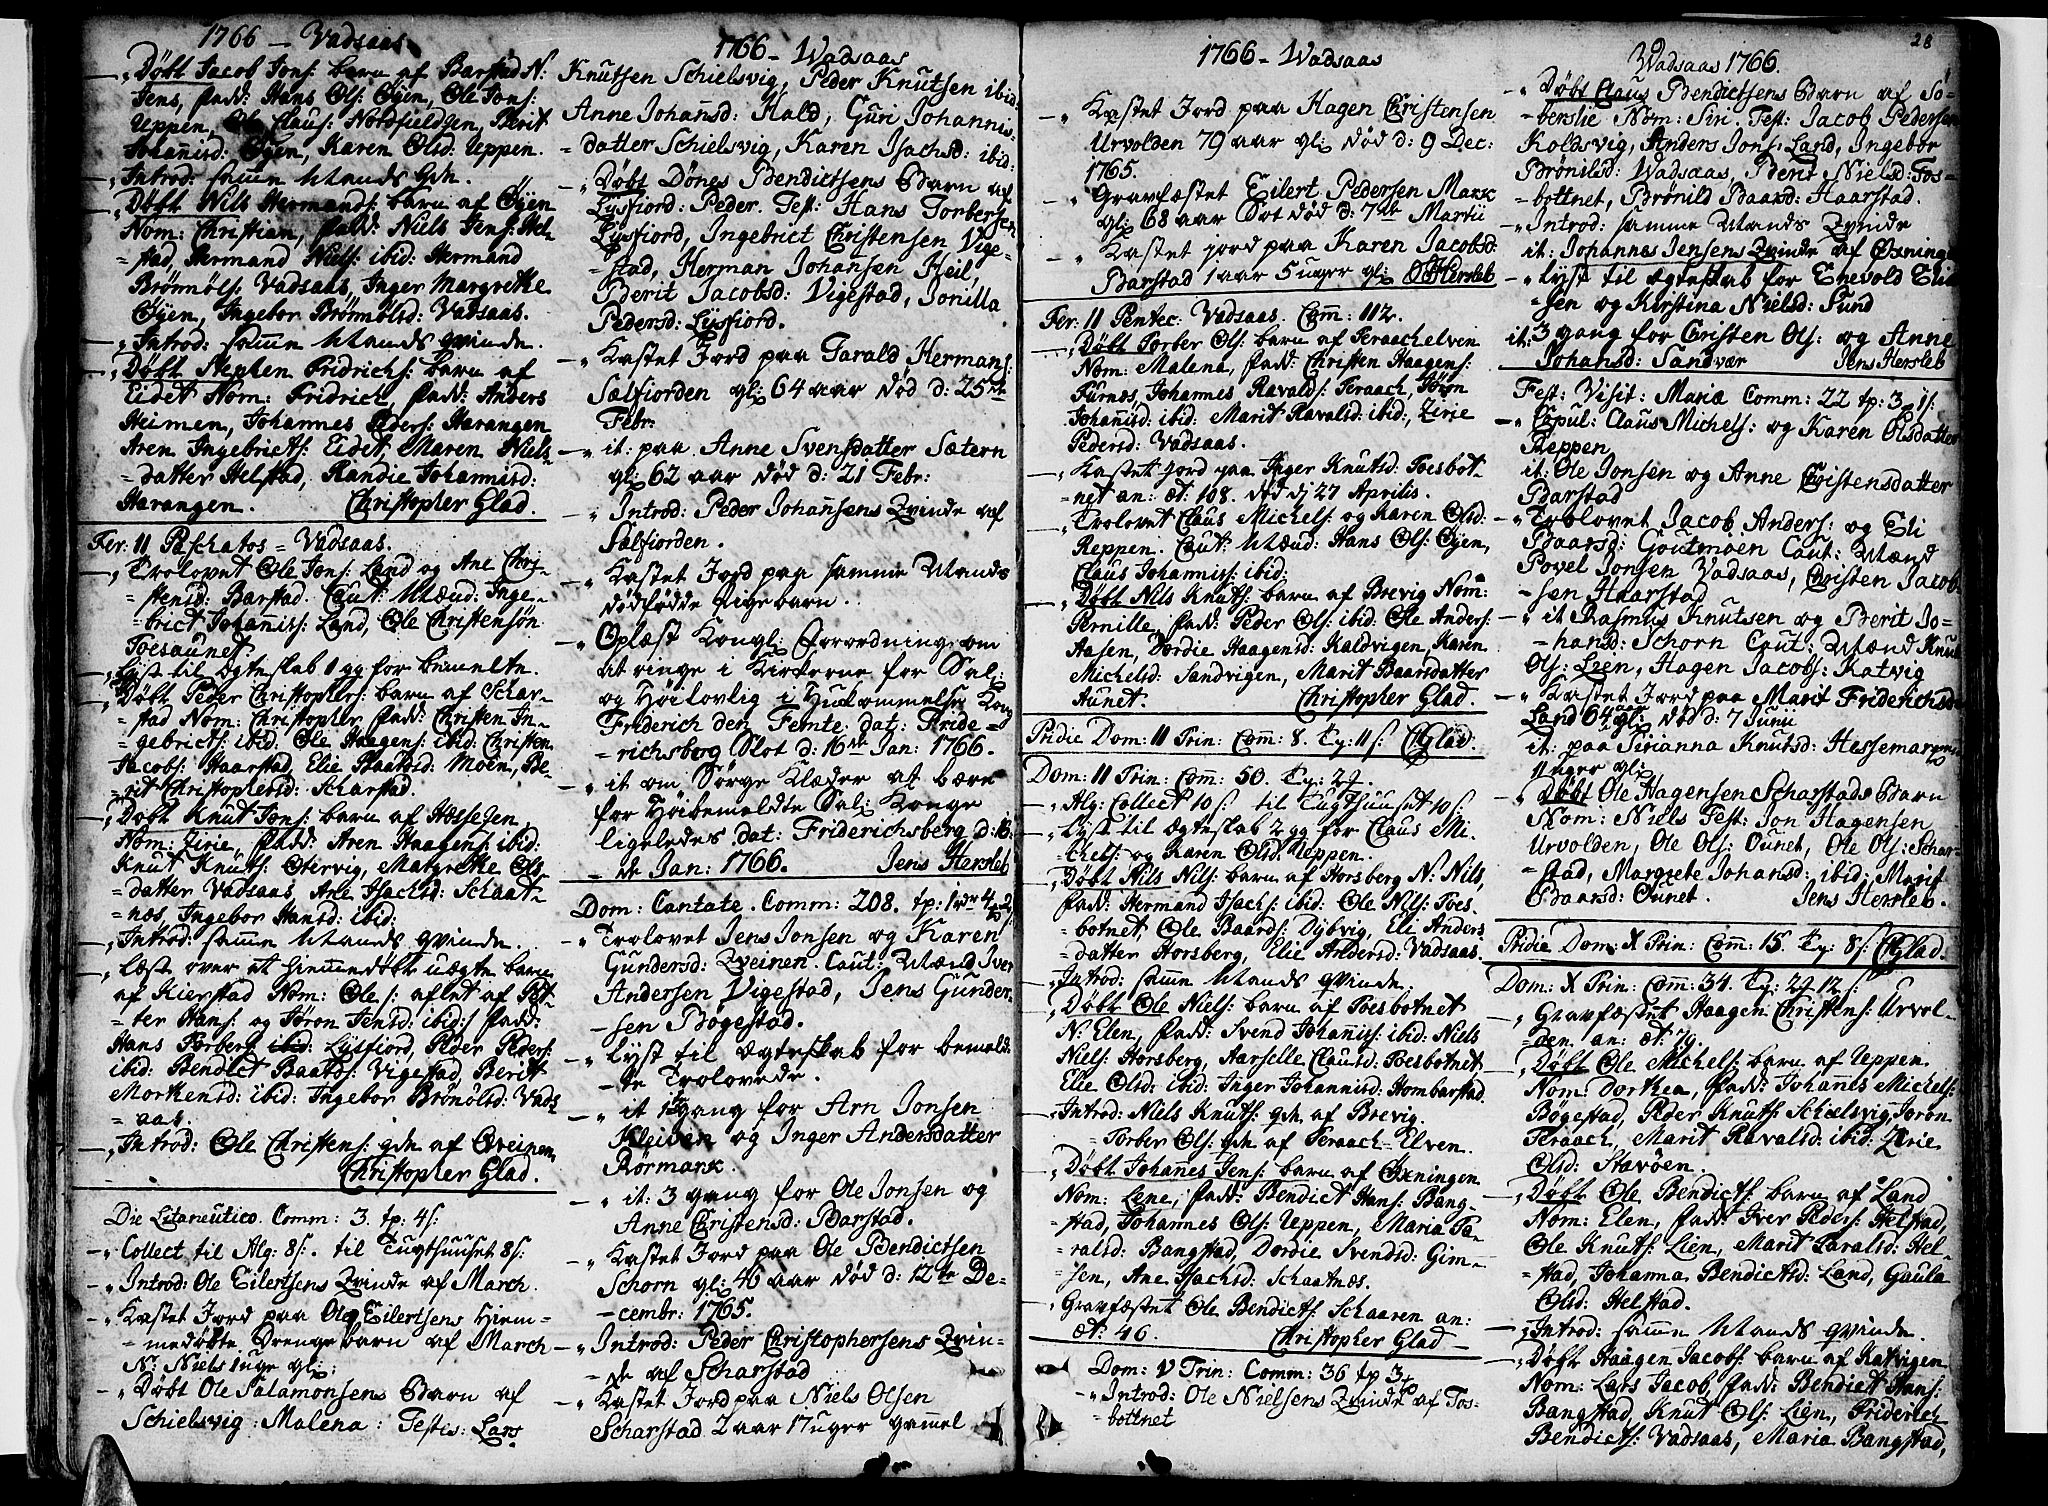 1766 – Vadsaas
–„ Døbt Jacob Jons: barn af Barstad N:
Jens, fadd: Hans Ols: Øÿen, Ole Jons:
Ueppen, Claus: Nordfieldgen, Berit
Johanisd: Øÿen, Karen Olsd: Ueppen.
–„ Introd: samme Mands qv.
–„ Døbt Nils Hermands: barn af Øÿen
Nom: Christian, fadd: Niels Jens: Hel-
=stad, Hermand Niels: ibid: Hermand
Brønnøls: Vadsaas, Inger Margrethe
Øÿen, Ingebor Brønnølsd: Vadsaas.
–„ Introd: samme Mands qvinde.
–„ Døbt Stephen Fridrichs: barn af
Eidet Nom: Fridrich, fadd: Anders
Heimen, Johannes Peders: Harangen
Aren Ingebricts: Eidet, Maren Niels-
=datter Helstad, Randie Johannisd:
Harangen. Christopher Glad.
Fer: II Paschatos = Vadsaas.
–„ Trolovet Ole Jons: Land og Ane Chri-
=stensd: Barstad. Caut: Mænd: Inge-
=brict Johaniss: Land, Ole Christensøn
Toesaunet
–„ Lyst til Ægteskab 1 gg for bemelte.
–„ Døbt Peder Christophers: barn af Schar-
=stad Nom: Christopher, fadd: Christen In-
=gebricts: ibid: Ole Haagens: ibid: Christen
Jacobs: Haarstad, Elie Baarsd: Moen, Be-
rit Christophersd: Scharstad.
–„ Døbt Knut Jons: barn af Hossesen,
Nom: Zirie, fadd: Aren Haagens: ibid:
Knut Knuts: Otervig, Margrethe Ols-
=datter Vadsaas, Ane Isachsd: Schaat-
=næs, Ingebor Hansd: ibid:
–„ Introd: samme Mands qvinde.
–„ Læst over et hiemmedøbt uægte barn
af Kierstad Nom: Ole /: aflet af Pet-
=ter Hans: og Jøron Jensd: ibid:/ fadd:
Hans Torberg: Lÿsfiord, Peder Peders:
ibid: Bendict Baards: Vigestad, Berit
Morkensd: ibid: Ingebor Brønølsd: Vads
=aas.
–„ Introd: Ole Christens: qv. af Qveinen.
Christopher Glad.
Die Litaneutico. Comm: 3. tp: 4 s:
–„ Collect til Alg: 8 s:. til Tugthuuset 8 s:
–„ Introd: Ole Eilertsens Qvinde af March.
–„ Kastet Jord paa Ole Eilertsens Hiem-
=medøbte Drenge barn af March
N: Niels 1 uge gl:
–„ Døbt Ole Salamonsens Barn af
Schielsvig: Malena: Testes: Lars
1766 – Wadsaas
Knutsen Schielsvig, Peder Knutsen ibid:
Anne Johansd: Hald, Guri Johannis-
=datter Schielsvig, Karen Isachsd: ibid:
–„ Døbt Dønes Bendictsens Barn af
Lÿsfiord: Peder. Test: Hans Torbersen
Lÿsfiord, Ingebrict Christensen Vige-
=stad, Herman Johansen Keil,
Berit Jacobsd: Vigestad, Jonilla
Pedersd: Lÿsfiord.
–„ Kastet Jord paa Tarald Hermans:
Sælfiorden gl: 64 aar død d: 25de
Febr:
–„ it: paa Anne Svensdatter Sætern
gl: 62 aar død d: 21 Febr:
–„ Introd: Peder Johansens Qvinde af
Sælfiorden.
–„ Kastet Jord paa samme Mands
dødfødde Pigebarn.
–„ Oplæst Kongl: Forordning om
at ringe i Kirkerne for Sal:
og Høilovlig i Hukommelse Kong
Friderich den Femte dat: Fride-
=richsberg Slot d: 16de Jan: 1766.
–„ it om Sørge Klæder at bære
for Høibemeldte Sal: Konge
ligeledes dat: Friderichsberg d: 16
=de Jan: 1766. Jens Hersleb
Dom: Cantate. Comm: 208. tp: 1 rdr 4
–„ Trolovet Jens Jonsen og Karen
Gundersd: Qveinen. Caut: Mænd Iver
Andersen Vigestad, Jens Gunder-
=sen Bøgestad.
–„ Lyst til Ægteskab for bemeld:
=te Trolovede.
–„ it 1te gang for Arn Jonsen
Kleivan og Inger Andersdatter
Rørmark.
–„ it: 3 gang for Ole Jonsen og
Anne Christensd: Barstad.
–„ Kastet Jord paa Ole Bendictsen
Schorn gl: 46 aar død d: 12te De-
=cembr: 1765.
–„ Introd: Peder Christophersens Qvin-
=de af Scharstad
–„ Kastet Jord paa Niels Olsen
Scharstad 2 aar 17 uger gammel
1766 – Wadsaas
–„ Kastet Jord paa Hagen Christensen
Urvolden 79 aar gl: død d: 9 Dec:
1765.
–„ Gravfæstet Eilert Pedersen Mark
gl: 68 aar død d: 7de Martii
–„ Kastet jord paa Karen Jacobsd:
Barstad 1 aar 5 uger gl: Hersleb
Fer: II Pentec: Vadsaas. Comm: 112.
–„ Døbt Torber Ols: barn af Teraachelven
Nom: Malena, fadd: Christen Haagens:
Furnæs Johannes Ravalds: Teraach, Jøren
Johanisd: ibid: Marit Ravalsd: ibid:, Zirie
Pedersd: Vadsaas.
–„ Kastet jord paa Inger Knutsd: Toesbot-
=net an: æt: 108. død d: 27 Aprilis.
–„ Trolovet Claus Michels: og Karen Olsd:
Reppen. Caut: Mænd: Hans Ols: Øÿen,
Claus Johaniss: ibid:
–„ Døbt Nils Knuts: barn af Brevig Nom:
Pernille, fadd: Peder Ols: ibid: Ole Anders:
Aasen, Dordie Haagensd: Kaldvigen, Karen
Michelsd: Sandvigen, Marit Baarsdatter
Aunet. Christopher Glad.
Pridie Dom: II Trin: Comm: 8. Tp: 11 s: CGlad.
Dom: II Trin: Comm: 50. Tp: 2
–„ Alg: Collect 10 s: til Tugthuuset 10 s:
–„ Lyst til Ægteskab 2 gg for Claus Mi-
=chels: og Karen Olsd: Ueppen.
–„ Døbt Nils Nils: barn af Horsberg N: Nils,
fadd: Hermand Isachs: ibid: Ole Nils: Toes-
=botnet, Ole Baards: Dybvig, Eli Anders
=datter Horsberg, Elie Andersd: Vadsaas.
–„ Introd: samme Mands qvinde.
–„ Døbt Ole Niels: barn af Toesbotnet
N: Elen, fadd: Svend Johaniss: ibid: Niels
Niels: Horsberg, Aarselle Clausd: Toesbotnet
Elie Olsd: ibid: Inger Johannisd: Hombarstad.
–„ Introd: Niels Knuts: qv. af Brevig.
= Torber Ols: qv. af Teraach-Elven.
–„ Døbt Johanes Jens: barn af Øxningen
Nom: Lene, fadd: Bendict Hans: Bang-
=stad, Johannes Ols: Ueppen, Maria Ta-
=ralsd: Bangstad, Dordie Svendsd: Gim-
=sen, Ane Isachsd: Schaatnæs.
–„ Gravfæstet Ole Bendicts: Schaaren an:
æt: 46. Christopher Glad –
Dom: V Trin: Comm: 36 tp 3
–„ Introd: Ole Nielsens Qvinde af Tos-
=bottnet
28
Wadsaas 1766.
–„ Døbt Claus Bendictsens Barn af So-
=berslie Nom: Siri. Test: Jacob Pedersen
Koldsvig, Anders Jons: Land, Ingebor
Brønilsd: Wadsaas, Berit Nielsd: Tos-
=bottnet, Brønild Baarsd: Haarstad.
–„ Introd: samme Mands Qvinde
it: Johannes Jensens Qvinde af Øxning
–„ Lyst til Ægteskab for Enevold Eli
=sen og Kirstina Nielsd: Sund
it: 3 gang for Christen Ols: og Anne
Johansd: Sandvær Jens Hersleb
Fest: Visit: Mariæ Comm: 22 tp: 3 1 s:
–„ Copul: Claus Michels: og Karen Olsdatter
Reppen
it: Ole Jonsen og Anne Christensdatter
Barstad
–„ Trolovet Jacob Anders: og Eli
Baarsd: Goutmoen Caut: Mænd
Povel Jonsen Vadsaas, Christen Jacob-
=sen Haarstad
–„ it Rasmus Knutsen og Berit Jo-
=hansd: Schorn Caut: Mænd Knut
Ols: Lien, Hagen Jacobs: Katvig
–„ Kastet Jord paa Marit Friderichsd:
Land 64 aar gl: død d: 7 Junii
it: paa Sirianna Knutsd: Hessemar
11 uger gl:
–„ Døbt Ole Hagensen Scharstads Barn
Nom: Niels Test: Jon Hagensen
Urvolden, Ole Ols: Ounet, Ole Ols: Schar-
=stad, Margrete Johansd: ibid: Marit
Baarsd: Ounet. Jens Hersleb.
Pridie Dom: X Trin: Comm: 15. Tp: 8 s: CGlad.
Dom: X Trin: Comm: 34. Tp: 2 12 s:
–„ Gravfæstet Haagen Christens: Urvol-
=den an: æt: 79.
–„ Døbt Ole Michels: barn af Ueppen
Nom: Dorthea, fadd: Johannes Michels:
Bøgestad, Peder Knuts: Schielsvig, Joron
Teraach, Marit Ravalsd: ibid: Zirie
Olsd: Stavøen.
–„ Døbt Ole Bendicts: barn af Land
Nom: Elen, fadd: Iver Peders: Helstad,
Ole Knuts: Lien, Marit Taralsd: Hel-
=stad, Johanna Bendictsd: Land, Gaula
Olsd: Helstad.
–„ Introd: samme Mands qvinde.
–„ Døbt Haagen Jacobs: barn af Katvigen
Nom: Lars Jacob, fadd: Bendict Hans:
Bangstad, Knut Ols: Lien, Friderich
Bendicts: Vadsaas, Maria Bangstad,